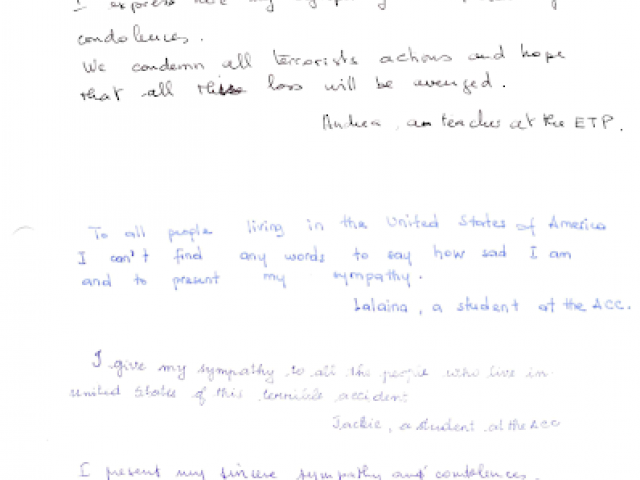 I express
condolences.
We condemn all terrorists actions and hope
that all this loss will be avenged.
Andrea, an teacher at the ETP.
To all people living in the United States of America
I can't find any words to say how sad I am
and to present my sympathy.
Lalaina, a student at the ACC.
I give my sympathy to all the people who live in
united States of this terrible accident
Jackie, a student at the ACC
I present my sincere sympathy and condolences.